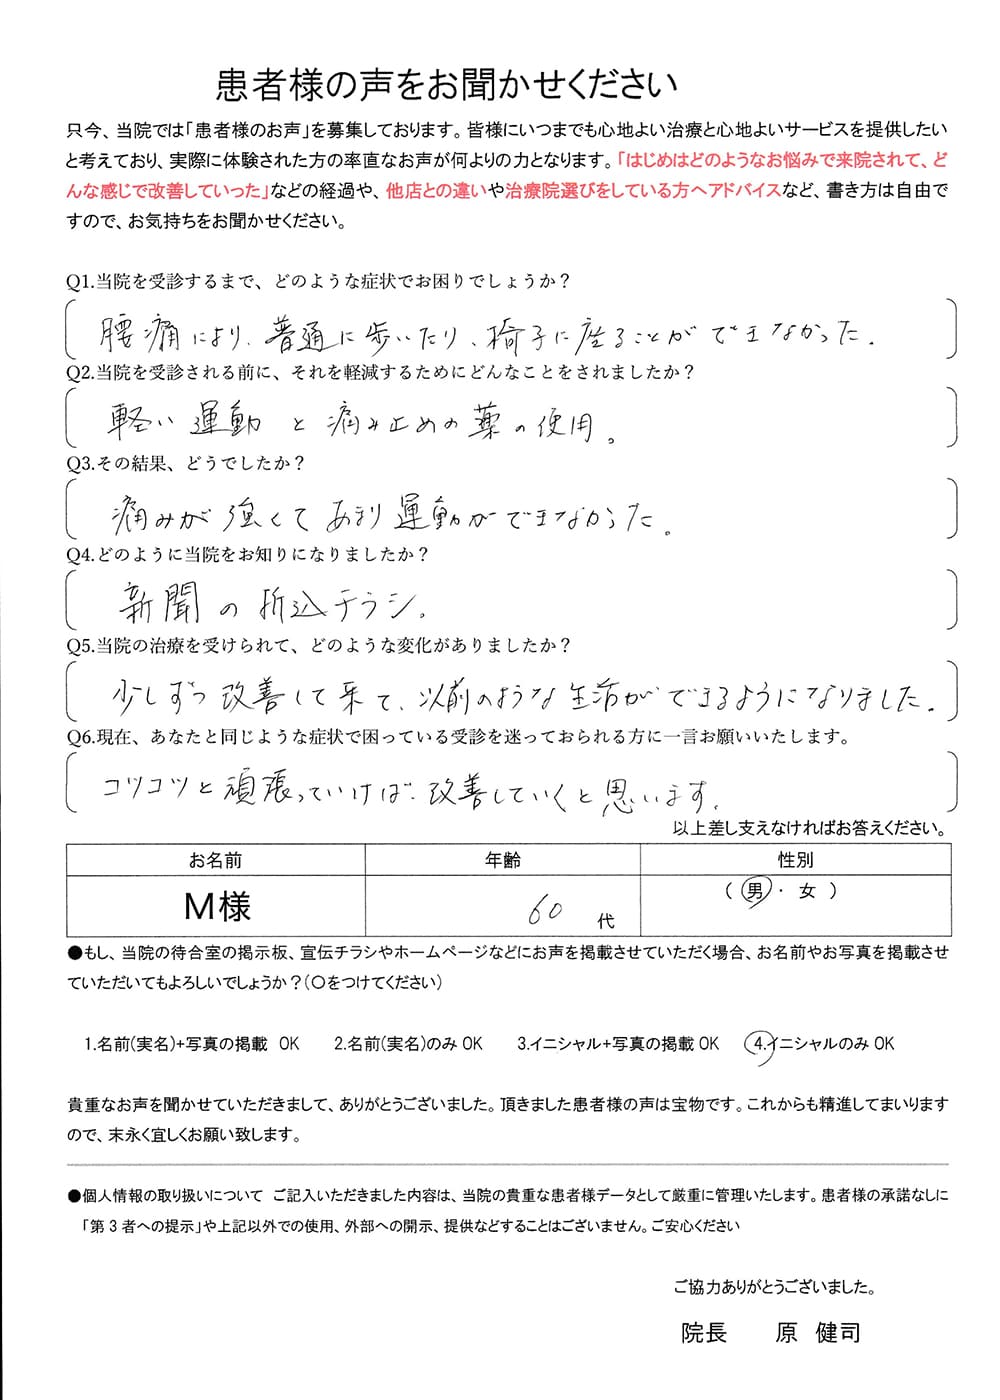 患者様の声をお聞かせください
只今、当院では「患者様のお声」を募集しております。皆様にいつまでも心地よい治療と心地よいサービスを提供したい
と考えており、実際に体験された方の率直なお声が何よりの力となります。「はじめはどのようなお悩みで来院されて、ど
んな感じで改善していった」などの経過や、他店との違いや治療院選びをしている方へアドバイスなど、書き方は自由で
すので、お気持ちをお聞かせください。
Q1.当院を受診するまで、どのような症状でお困りでしょうか？
腰痛により、普通に歩いたり、椅子に座ることができなかった。
Q2.当院を受診される前に、それを軽減するためにどんなことをされましたか？
軽い運動と痛み止めの薬の使用。
Q3.その結果、どうでしたか？
痛みが強くてあまり運動ができなかった。
Q4.どのように当院をお知りになりましたか？
新聞の折込チラシ。
Q5.当院の治療を受けられて、どのような変化がありましたか？
少しずつ改善して来て、以前のような生活ができるようになりました。
Q6.現在、あなたと同じような症状で困っている受診を迷っておられる方に一言お願いいたします。
コツコツと頑張っていけば、改善していくと思います。
以上差し支えなければお答えください。
お名前 年齢 性別
M様 60代 （ 男 ・ 女 ）
●もし、当院の待合室の掲示板、宣伝チラシやホームページなどにお声を掲載させていただく場合、お名前やお写真を掲載させ
ていただいてもよろしいでしょうか？（○をつけてください）
1.名前(実名)+写真の掲載 OK 2.名前(実名)のみ OK 3.イニシャル+写真の掲載 OK 4.イニシャルのみ OK
貴重なお声を聞かせていただきまして、ありがとうございました。頂きました患者様の声は宝物です。これからも精進してまいります
ので、末永く宜しくお願い致します。
●個人情報の取り扱いについて ご記入いただきました内容は、当院の貴重な患者様データとして厳重に管理いたします。患者様の承諾なしに
「第３者への提示」や上記以外での使用、外部への開示、提供などすることはございません。ご安心ください
ご協力ありがとうございました。
院長 原 健司